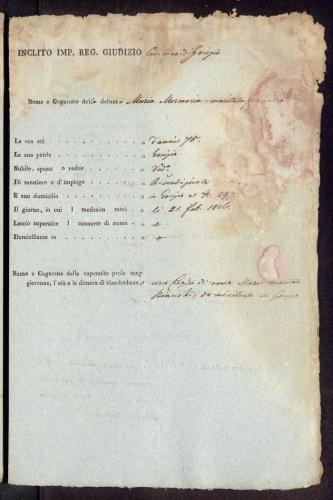 INCLITO IMP. REG. GIUDIZIO Civ. Prov. di Gorizia
Nome e Cognome della defunta Maria Marmoria maritata
La sua età „ d'anni 78.
La sua patria „ Gorizia
Nubile, sposat o vedov „ Ved.a
Di mestiere o d'impiego „
Il suo domicilio „ in Gorizia al N. 297.
Il giorno, in cui l medesim morì „ li 21. Feb. 1826.
Lasciò superstite l consorte di nome „
Domiciliante in „
Nome e Cognome della superstite prole mag-
giorenne, l'età e la dimora di ciascheduno „ una figlia di nome Maria maritata
domiciliata in Gorizia